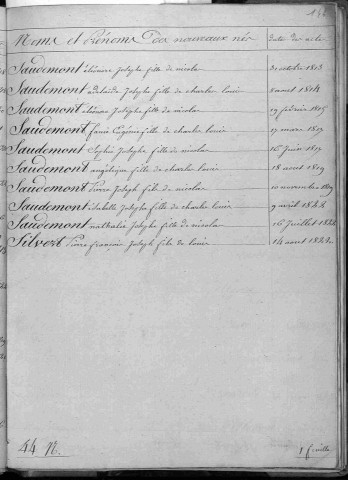 Noms et Prénoms Des nouveaux nés date des actes
Saudemont éléonore Josephe fille de nicolas 31 octobre 1813
Saudemont adelaide Josephe fille de charles louis 8 aout 1814
Saudemont éléonore Josephe fille de nicolas 19 février 1815
Saudemont fanie Eugénie fille de charles louis 17 mars 1817
Saudemont Sophie Josephe fille de nicolas 16 Juin 1819
Saudemont angélique fille de charles louis 18 aout 1819
Saudemont Pierre Joseph fils de nicolas 10 novembre
Saudemont isabelle Josephe fille de charles louis 9 avril 1822
Saudemont nathalie Josephe fille de nicolas 16 Juillet 1822
Silvert Pierre françois Joseph fils de louis 14 aout 1822
44 N.